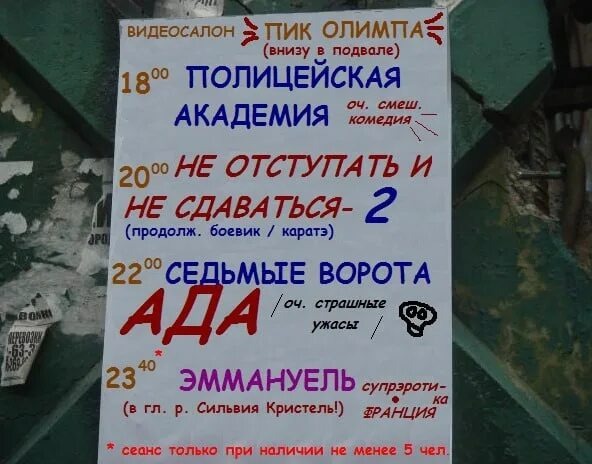 ВИДЕОСАЛОН ПИК ОЛИМПА
(внизу в подвале)
18⁰⁰ ПОЛИЦЕЙСКАЯ
АКАДЕМИЯ оч. смеш.
комедия
20⁰⁰ НЕ ОТСТУПАТЬ И
НЕ СДАВАТЬСЯ- 2
(продолж. боевик / каратэ)
22⁰⁰ СЕДЬМЫЕ ВОРОТА
АДА /оч. страшные
ужасы /
23⁴⁰ * ЭММАНУЕЛЬ супрэроти-
ка
(в гл. р. Сильвия Кристель!) ФРАНЦИЯ
* сеанс только при наличии не менее 5 чел.